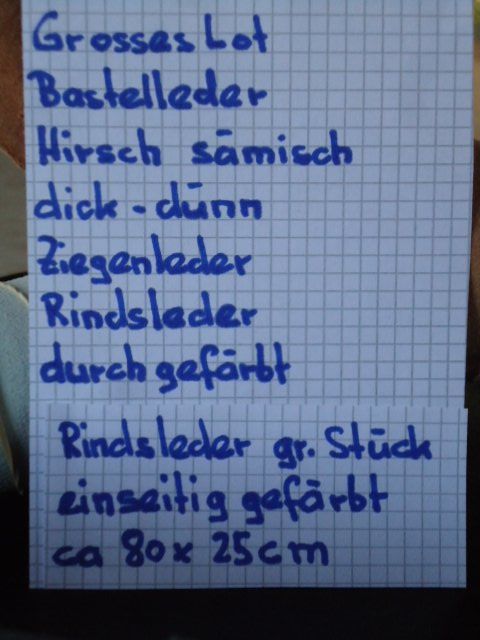 Grosses Lot
Bastelleder
Hirsch sämisch
dick - dünn
Ziegenleder
Rindsleder
durchgefärbt
Rindsleder gr. Stück
einseitig gefärbt
ca 80 x 25 cm